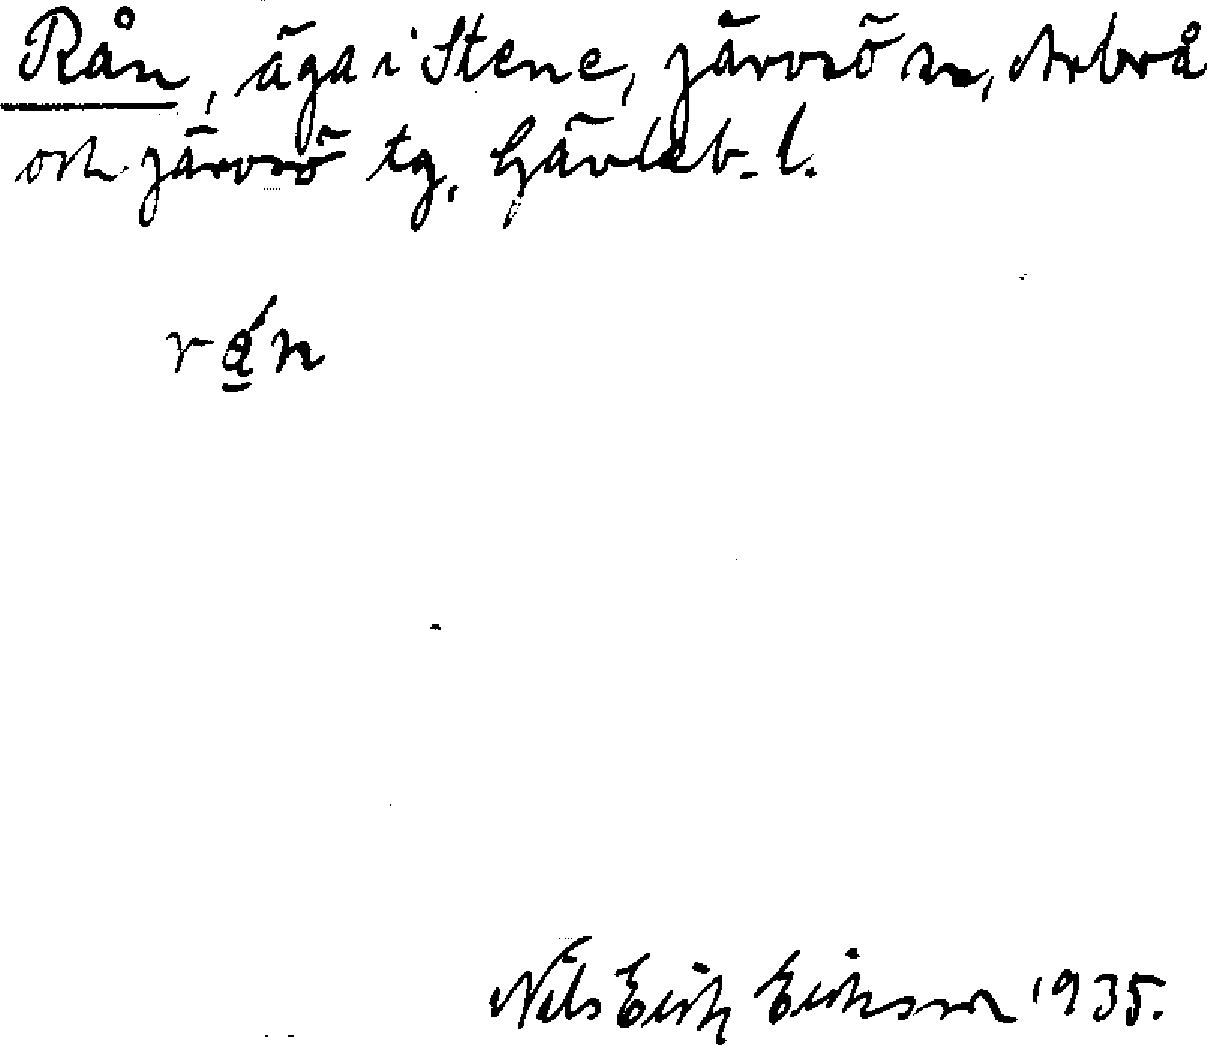 Rån, äga i Stene, Järvsö sn, Arbrå
och Järvsö tg, Gävleb. l.
rá̱n
Nils Erik Eriksson 1935.